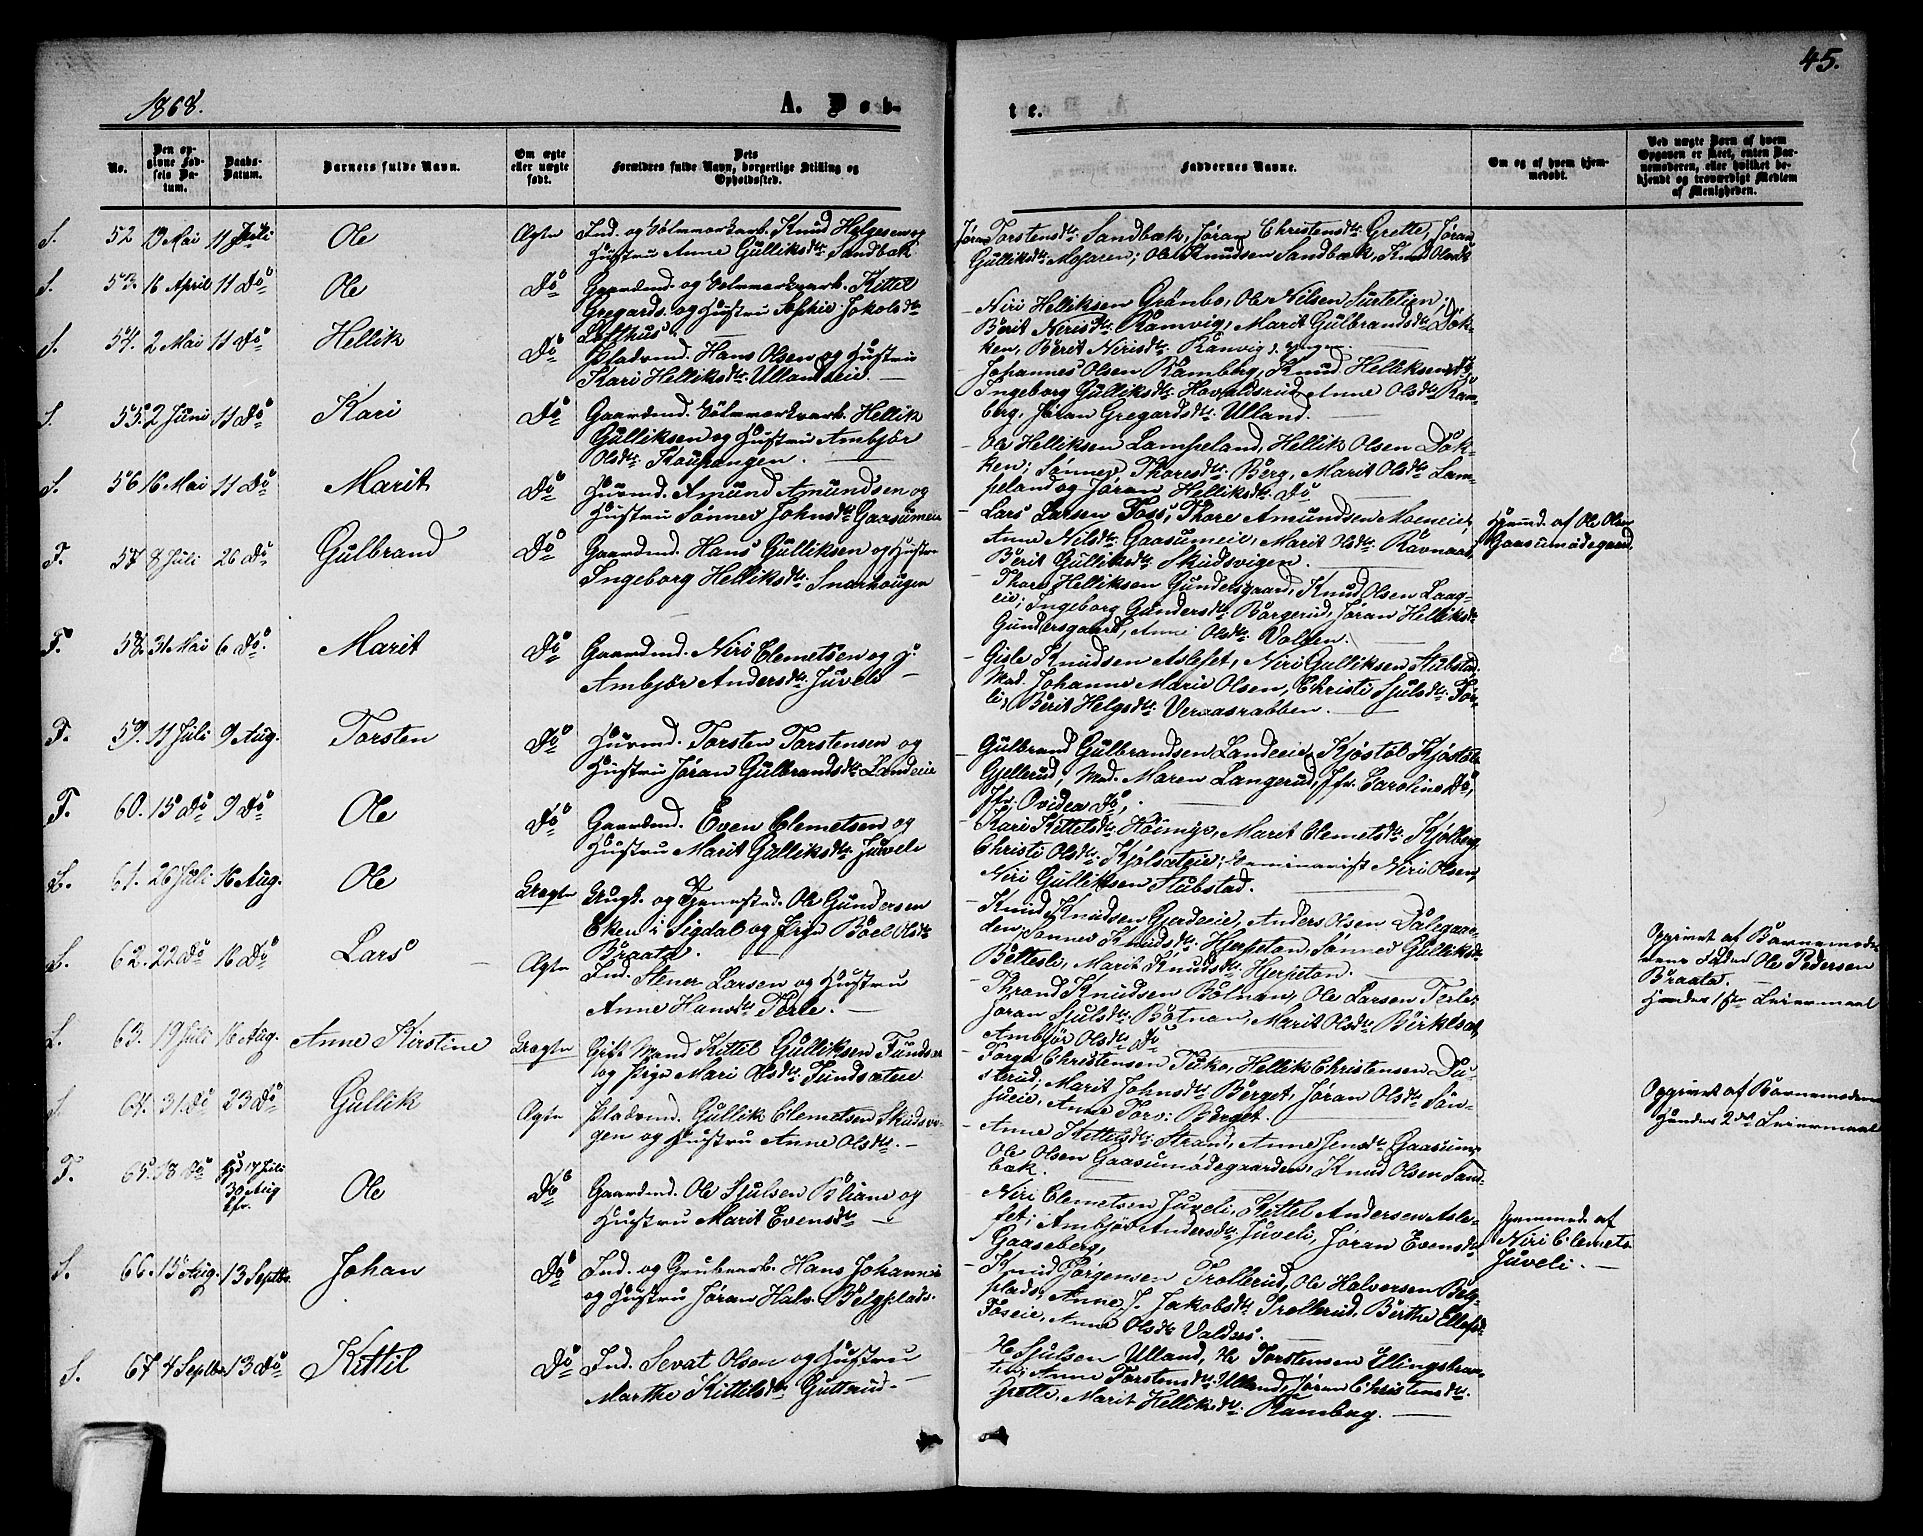 45.
1868.
A. Døb-
te.
No.
Den opgivne Fødsels Datum.
Daabs-Datum.
Barnets fulde Navn.
Om ægte eller uægte født.
Dets Forældres fulde Navn, borgerlige Stilling og Opholdssted.
Faddernes Navne.
Om og af hvem hjemmedøbt.
Ved uægte Børn af hvem Opgaven er skeet, enten Barnemoderen, eller hvilket bekjendt og troværdigt Medlem af Menigheden.
S. 52 Mai 11 Juli Ole Ægte Ind. og Sølvværksarb. Knud Helgesen og
Hustru Anne Gulliksdtr. Sandbæk
Jøran Torstensdtr. Sandbæk, Jøran Christensdtr. Grette, Jøran
Gulliksdtr. Mosaren, Ole Knudsen Sandbæk, Knud Olsen do
S. 53. 16 April 11 Do Ole Do Gaardmd. og Sølvværksarb. Kittel
Gregards. og Hustru Sophie Jakobsdtr
Lofthus
- Niri Helliksen Grønbo, Ole Nilsen Surtelien,
Berit Nirisdtr. Ramvig, Marit Gulbrandsdtr. Døk-
ken, Berit Nirisdtr. Ranvig d. yngre.
S. 54. 2 Mai 11 Do Hellik Do Pladsmd. Hans Olsen og Hustru
Kari Helliksdtr. Ullandseie.
- Johannes Olsen Ramberg, Knud Helliksen do
Ingeborg Gulliksdtr. Hovaldsrud, Anne Olsdtr. Ram-
berg, Jøran Gregardsdtr. Ulland.
S. 55. 2 Juni 11 Do Kari Do Gaardmd. Sølvværksarb. Hellik
Gulliksen og Hustru Ambjør
Olsdtr. Kouhangen.
- Ole Helliksen Lampeland, Hellik Olsen Døk-
ken; Sønnev Thoresdtr. Berg, Marit Olsdtr. Lam-
peland og Jøran Helliksdtr. Do
S. 56 16 Mai 11 Do Marit Do Husmd. Amund Amundsen og
Hustru Sønnev Johnsdtr. Gaasumeie
- Lars Larsen Foss, Thore Amundsen Moeneie,
Anne Nilsdtr. Gaasumeie, Marit Olsdtr. Ravnaas,
Berit Gulliksdtr. Skudsvigen.
Hjemmd. af Ole Olsen
Gaasumødegaard
F. 57 8 Juli 26 Do Gulbrand Do Gaardmd. Hans Gulliksen og Hustru
Ingeborg Helliksdtr. Snarhougen
- Thore Helliksen Gundersgaard, Knud Olsen Laag-
eie; Ingeborg Gundersdtr. Borgerud, Jøran Helliksdtr
Gundersgaard, Anne Olsdtr. Volden.
F. 58. 31 Mai 6 Do. Marit Do Gaardmd. Niri Clemetsen og H:
Ambjør Andersdtr. Juveli
- Gisle Knudsen Aslefet, Niri Gulliksen Stubstad,
Mad. Johanne Marie Olsen, Christi Sjulsdtr. Før-
li, Berit Helgesdtr. Veraasrabben.
F. 59. 11 Juli 9 Aug. Torsten Do Husmd. Torsten Torstensen og
Hustru Jøran Gulbrandsdtr. Landeeie
- Gulbrand Gulbrandsen Landeeie, Kjøstol Kjøstols.
Gjellerud, Mad. Maren Langerud, Jfr. Caroline Do,
Jfr. Ovidea Do,
F. 60. 15 Do 9 Do Ole Do Gaardmd. Even Clemetsen og
Hustru Marit Gulliksdtr. Juveli
- Kari Kittelsdtr. Høimyr, Marit Clemetsdtr. Kjølberg,
Christi Olsdtr. Kjølsæteie; Seminarist Niri Olsen,
Niri Gulliksen Stubstad.
S. 61. 26 Juli 16 Aug. Ole Uægte Ungk. og Tjenestod. Ole Gundersen
Eken i Sigdal og Pige Boel Olsdtr
Braata.
- Knud Knudsen Gjerdeeie, Anders Olsen Dalegaar-
den, Sønnev Knudsdtr. Hjerpeton, Sønnev Gulliksdtr
Bettesli, Marit Knudsdtr. Hjerpeton.
Opgivet af Barnemode-
rens Fader Ole Pedersen
Braata.
Hendes 1ste Leiermaal
S. 62. 22 Do 16 Do Lars Ægte Ind. Stener Larsen og Hustru
Anne Hansdtr Førle.
- Thrond Knudsen Botnan, Ole Larsen Førle,
Jøran Sjulsdtr. Botnan, Marit Olsdtr. Birkesæt,
Ambjør Olsdtr. Do
S. 63. 19 Juli 16 Aug. Anne Kirstine Uægte Gift Mand Kittel Gulliksen Fundsæt
og Pige Mari Olsdtr. Fundsæteie
- Torger Christensen Tuko, Hellik Christensen Du-
sterud; Marit Johnsdtr. Børget, Jøran Olsdtr. Søn-
juveie, Anne Tors. Børget.
Opgivet af Barnemoderen
Hendes 2det Leiermaal
S. 64. 31. Do 23 Do Gullik Ægte Pladsmd. Gullik Clemetsen Skudsvi-
gen og Hustru Anne Olsdtr.
- Anne Kittelsdtr. Strand, Anne Jensdtr. Gaasum,
Ole Olsen Gaasumødegaarden, Knud Olsen Sand-
bæk.
F. 65. 8 Do Hjd 17 Juli
30 Aug
Kfr. Ole Do Gaardmd. Ole Sjulsen Bliane og
Hustru Marit Evensdtr
- Niri Clemetsen Juveli, Kittel Andersen Asle-
fet; Ambjør Andersdtr. Juveli, Jøran Evensdtr
Gaaseberg,
Hjemmed. af
Niri Clemets.
Juveli.
S. 66. 15 Aug. 13 Septbr. Johan Do Ind. og Grubearb. Hans Johannes.
og Hustru Jøran Halv. Bøleplads.
- Knud Jørgensen Trollerud, Ole Halvorsen Bøle-
plads, Anne J. Jakobsdtr. Trollerud, Birthe Ellefsdtr
Foseie, Anne Olsdtr Valdres.
S. 67 4 Septbr 13 Do Kittil Do Ind. Sevat Olsen og Hustru
Marthe Kittilsdtr. Gutterud.
- H. Sjulsen Ulland, H. Torstensen Ellingsbraa-
ten; Anne Torstensdtr. Ulland, Jøran Christensdtr.
Grette, Marit Helliksdtr. Ramberg.